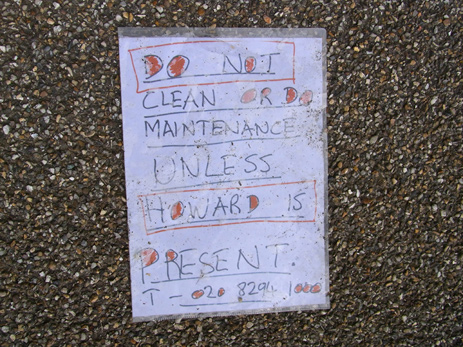 DO NOT
CLEAN OR DO
MAINTENANCE
UNLESS
HOWARD IS
PRESENT.
T - 020 8294 1000